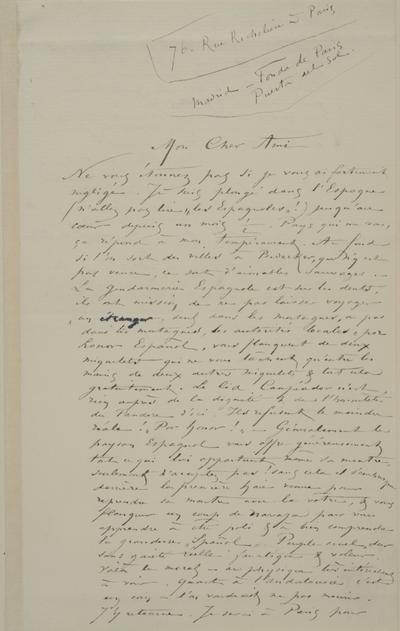 76. Rue Richelieu à Paris
Madrid – Fonda de Paris
Puerta del Sol.
Mon Cher Ami
Ne vous étonnez pas si je vous ai fortement
négligé. Je suis plongé dans l'Espagne
(n'allez pas lire „les Espagnoles"!) jusqu'au
cœur depuis un mois! Pays qui me va,
ça répond à mon tempérament. Au fond
si l'on sort des villes à
pas venue, ce sont d'aimables sauvages.
La gendarmerie Espagnole est sur les dents,
ils ont mission de ne pas laisser voyager
un étranger seul dans les montagnes,
dans les montagnes, les autorités locales, par
honor Español, vous flanquent de deux
miquelets qui ne vous lâchent qu'entre les
mains de deux autres miquelets & tout cela
gratuitement. Le Cid Campéador n'est
rien auprès de la dignité & de l'
du Pandore d'ici. Ils refusent le moindre
réale! „Por Honor"! Généralement le
paysan Espagnol vous offre généreusement
tout ce qui lui appartient même sa montre,
seulement n'acceptez pas! sans cela il s'embusque
derrière la première haie venue pour
reprendre sa montre avec la vôtre, & vous
flanquer un coup de navaja pour vous
apprendre à être poli & à bien comprendre
la grandesse Español. Peuple cruel, dur
sans gaité réelle, fanatique & voleur.
Voilà le moral – au physique très intéressant
à voir. Quant à l'Andalousie c'est
un coin à l'on voudrait ne pas mourir.
J'y retourne. Je serai à Paris pour